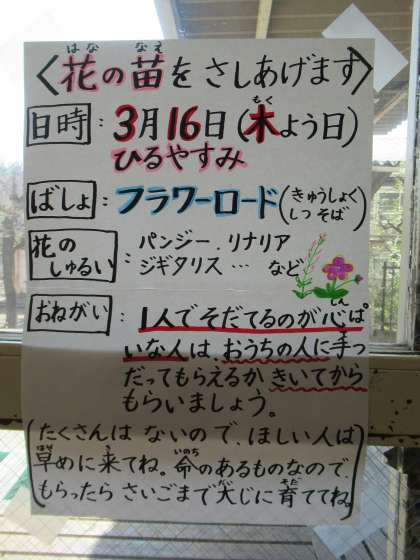 〈花の苗をさしあげます〉
日時：3月16日(木よう日)
ひるやすみ
ばしょ：フラワーロード(きゅうしょくしつ そば)
花のしゅるい：パンジー．リナリア
ジギタリス … など
おねがい：1人でそだてるのが心ぱ
いな人は、おうちの人に手つ
だってもらえるか きいてから
もらいましょう。
(たくさんは ないので、ほしい人は
草めに来てね。命のあるものなので、
もらったら さいごまで大じに育ててね。)